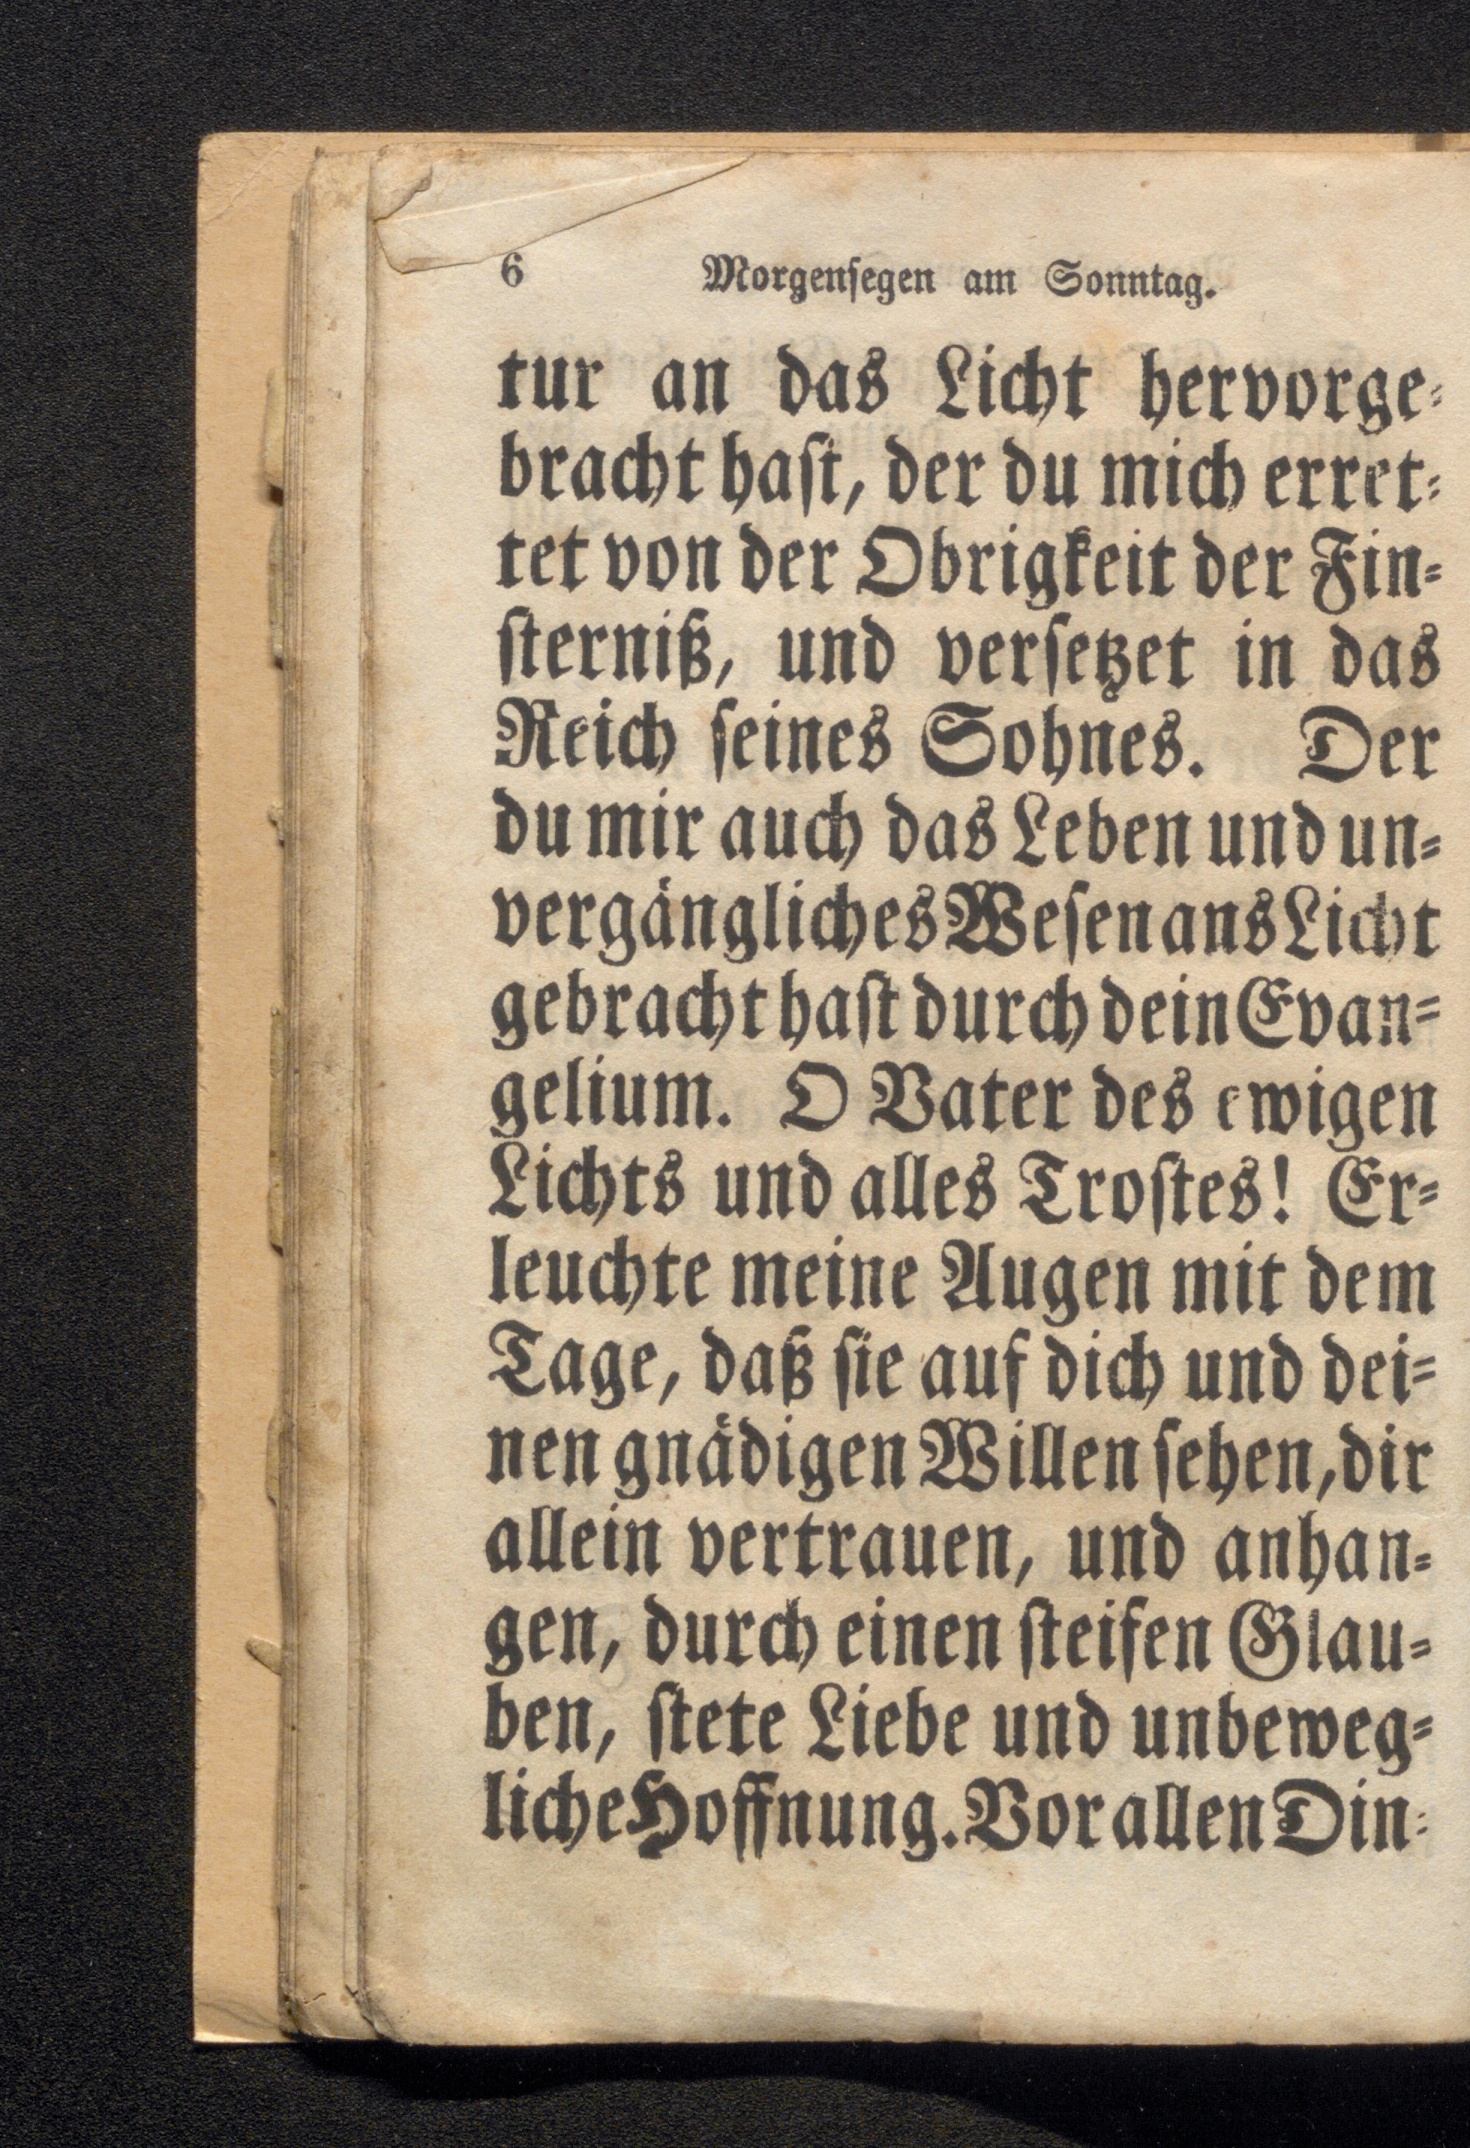 6 Morgenſegen am Sonntag.
tur an das Licht hervorge⸗
bracht haſt, der du mich erret⸗
tet von der Obrigkeit der Fin⸗
ſterniß, und verſetzet in das
Reich ſeines Sohnes. Der
du mir auch das Leben und un⸗
vergängliches Weſen ans Licht
gebracht haſt durch dein Evan⸗
gelium. O Vater des ewigen
Lichts und alles Troſtes! Er⸗
leuchte meine Augen mit dem
Tage, daß ſie auf dich und dei⸗
nen gnädigen Willen ſehen, dir
allein vertrauen, und anhan⸗
gen, durch einen ſteifen Glau⸗
ben, ſtete Liebe und unbeweg⸗
liche Hoffnung. Vor allen Din⸗